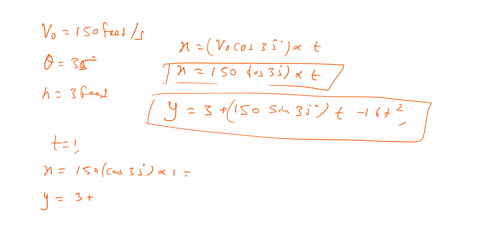 V₀ = 150 feet/s
θ = 35°
h = 3 feet
x = (V₀ cos 35°) × t
x = 150 cos 35° × t
y = 3 + (150 sin 35°) t - 16t²
t = 1,
x = 150 (cos 35°) × 1 =
y = 3 +